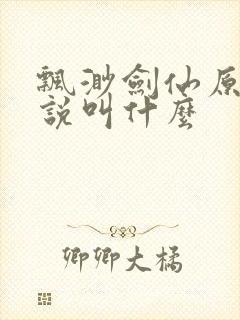 飄渺劍仙原
說叫什麼
卿卿大橘